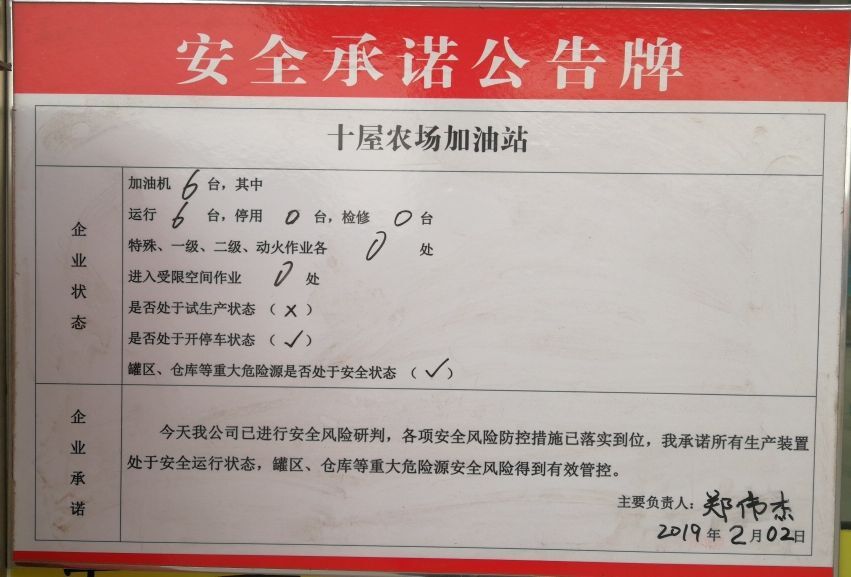 安全承诺公告牌
十屋农场加油站
企业状态
加油机 6 台，其中
运行 6 台，停用 0 台，检修 0 台
特殊、一级、二级、动火作业各 0 处
进入受限空间作业 0 处
是否处于试生产状态（×）
是否处于开停车状态（✓）
罐区、仓库等重大危险源是否处于安全状态（✓）
企业承诺
今天我公司已进行安全风险研判，各项安全风险防控措施已落实到位，我承诺所有生产装置
处于安全运行状态，罐区、仓库等重大危险源安全风险得到有效管控。
主要负责人：郑伟杰
2019年2月02日